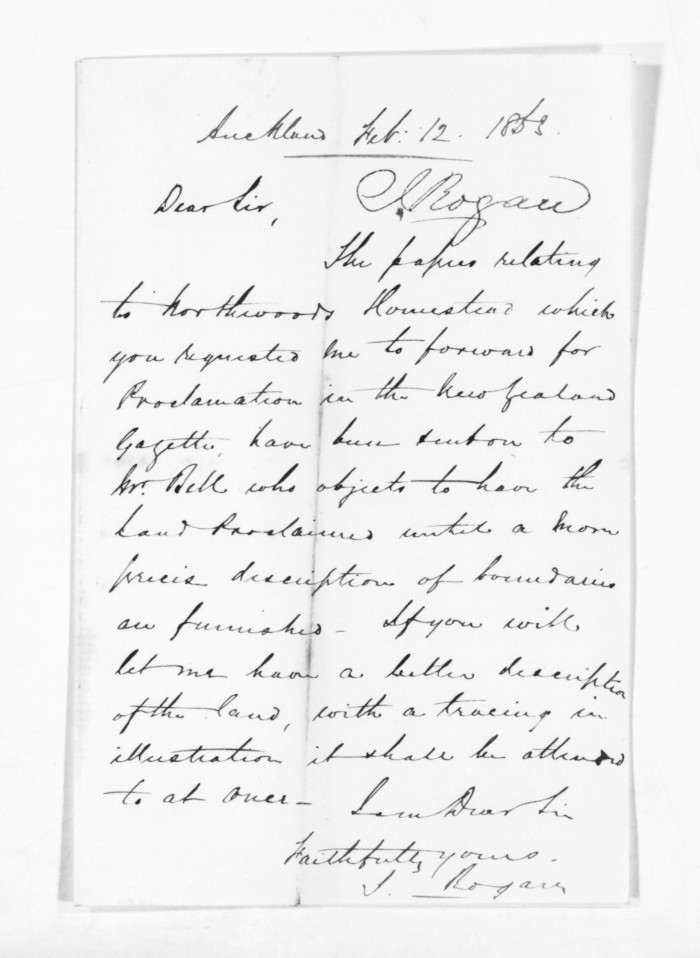 Auckland Feb: 12. 1863.
Dear Sir, J. Rogan
The papers relating
to Northwoods Homestead which
you requested me to forward for
Proclamation in the New Zealand
Gazette, have been sent on to
Mr. Bell who objects to have the
land Proclaimed until a more
precise description of boundaries
are furnished - If you will
let me have a better description
of the land, with a tracing in
illustration it shall be attended
to at once -
I am Dear Sir
Faithfully yours.
J. Rogan